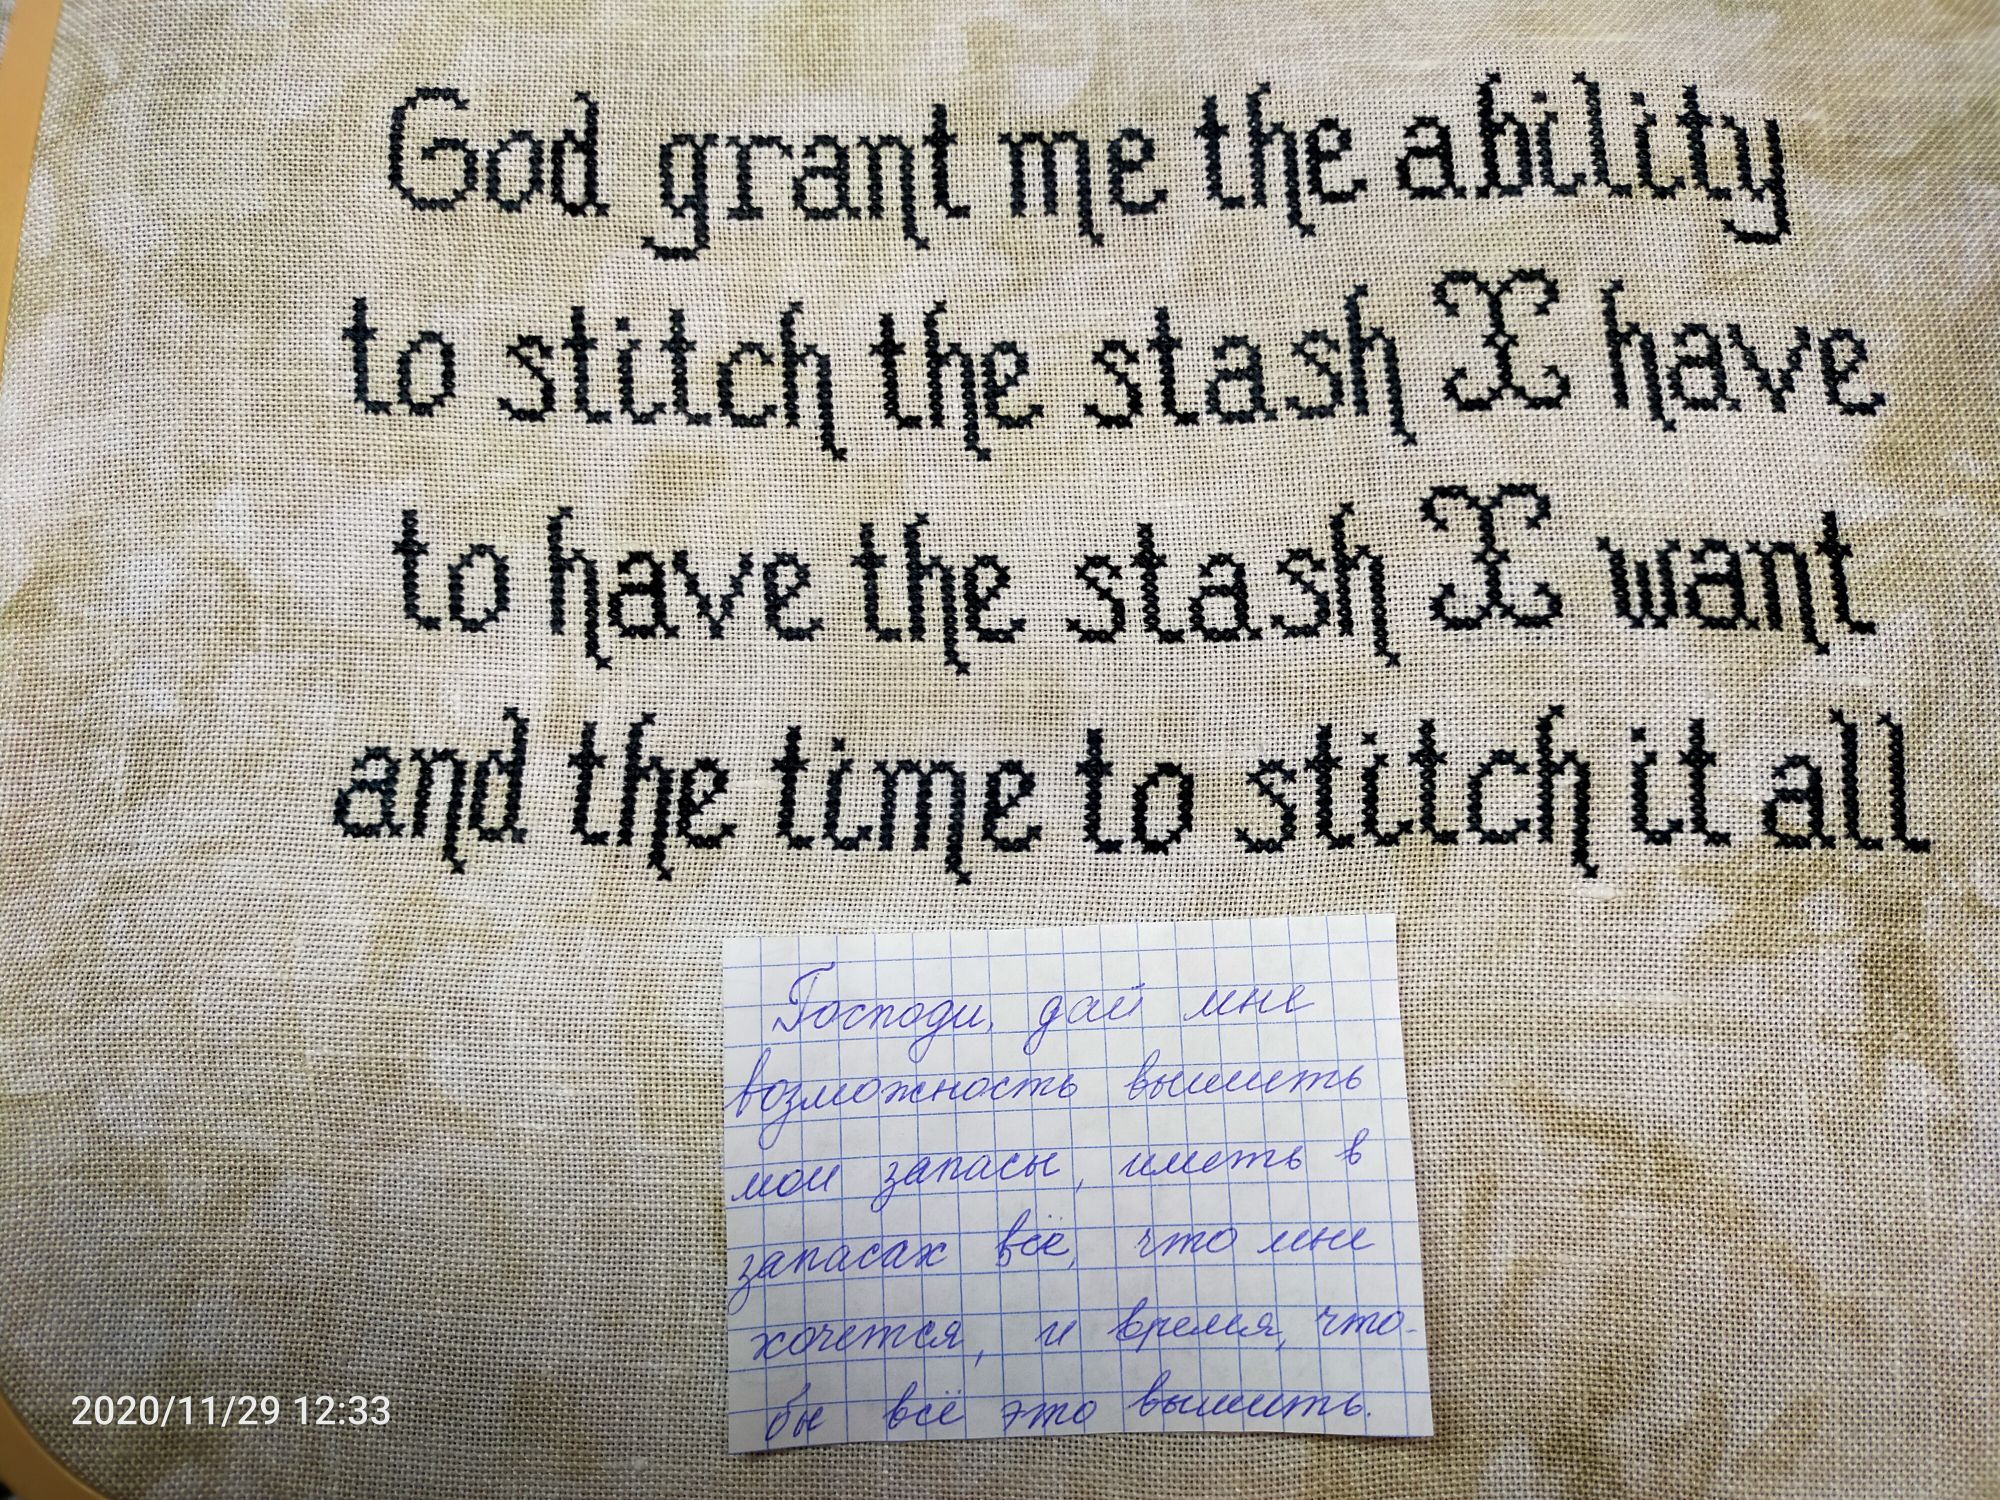 God grant me the ability
to stitch the stash I have
to have the stash I want
and the time to stitch it all
Господи, дай мне
возможность вышить
мои запасы, иметь в
запасах всё, что мне
хочется, и время, что-
бы всё это вышить.
2020/11/29 12:33